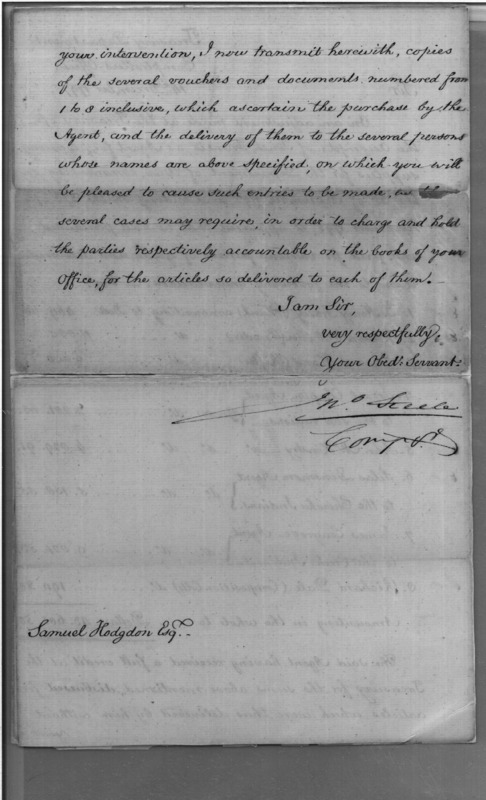 your intervention, I now transmit herewith, copies
of the several vouchers and documents numbered from
1 to 8 inclusive, which ascertain the purchase by the
Agent, and the delivery of them to the several persons
whose names are above specified, on which you will
be pleased to cause such entries to be made, as the
several cases may require, in order to charge and hold
the parties respectively accountable on the books of your
Office, for the articles so delivered to each of them.
I am Sir,
very respectfully,
Your Obedt Servant
Jno Steele
Compr
Samuel Hodgdon Esqr